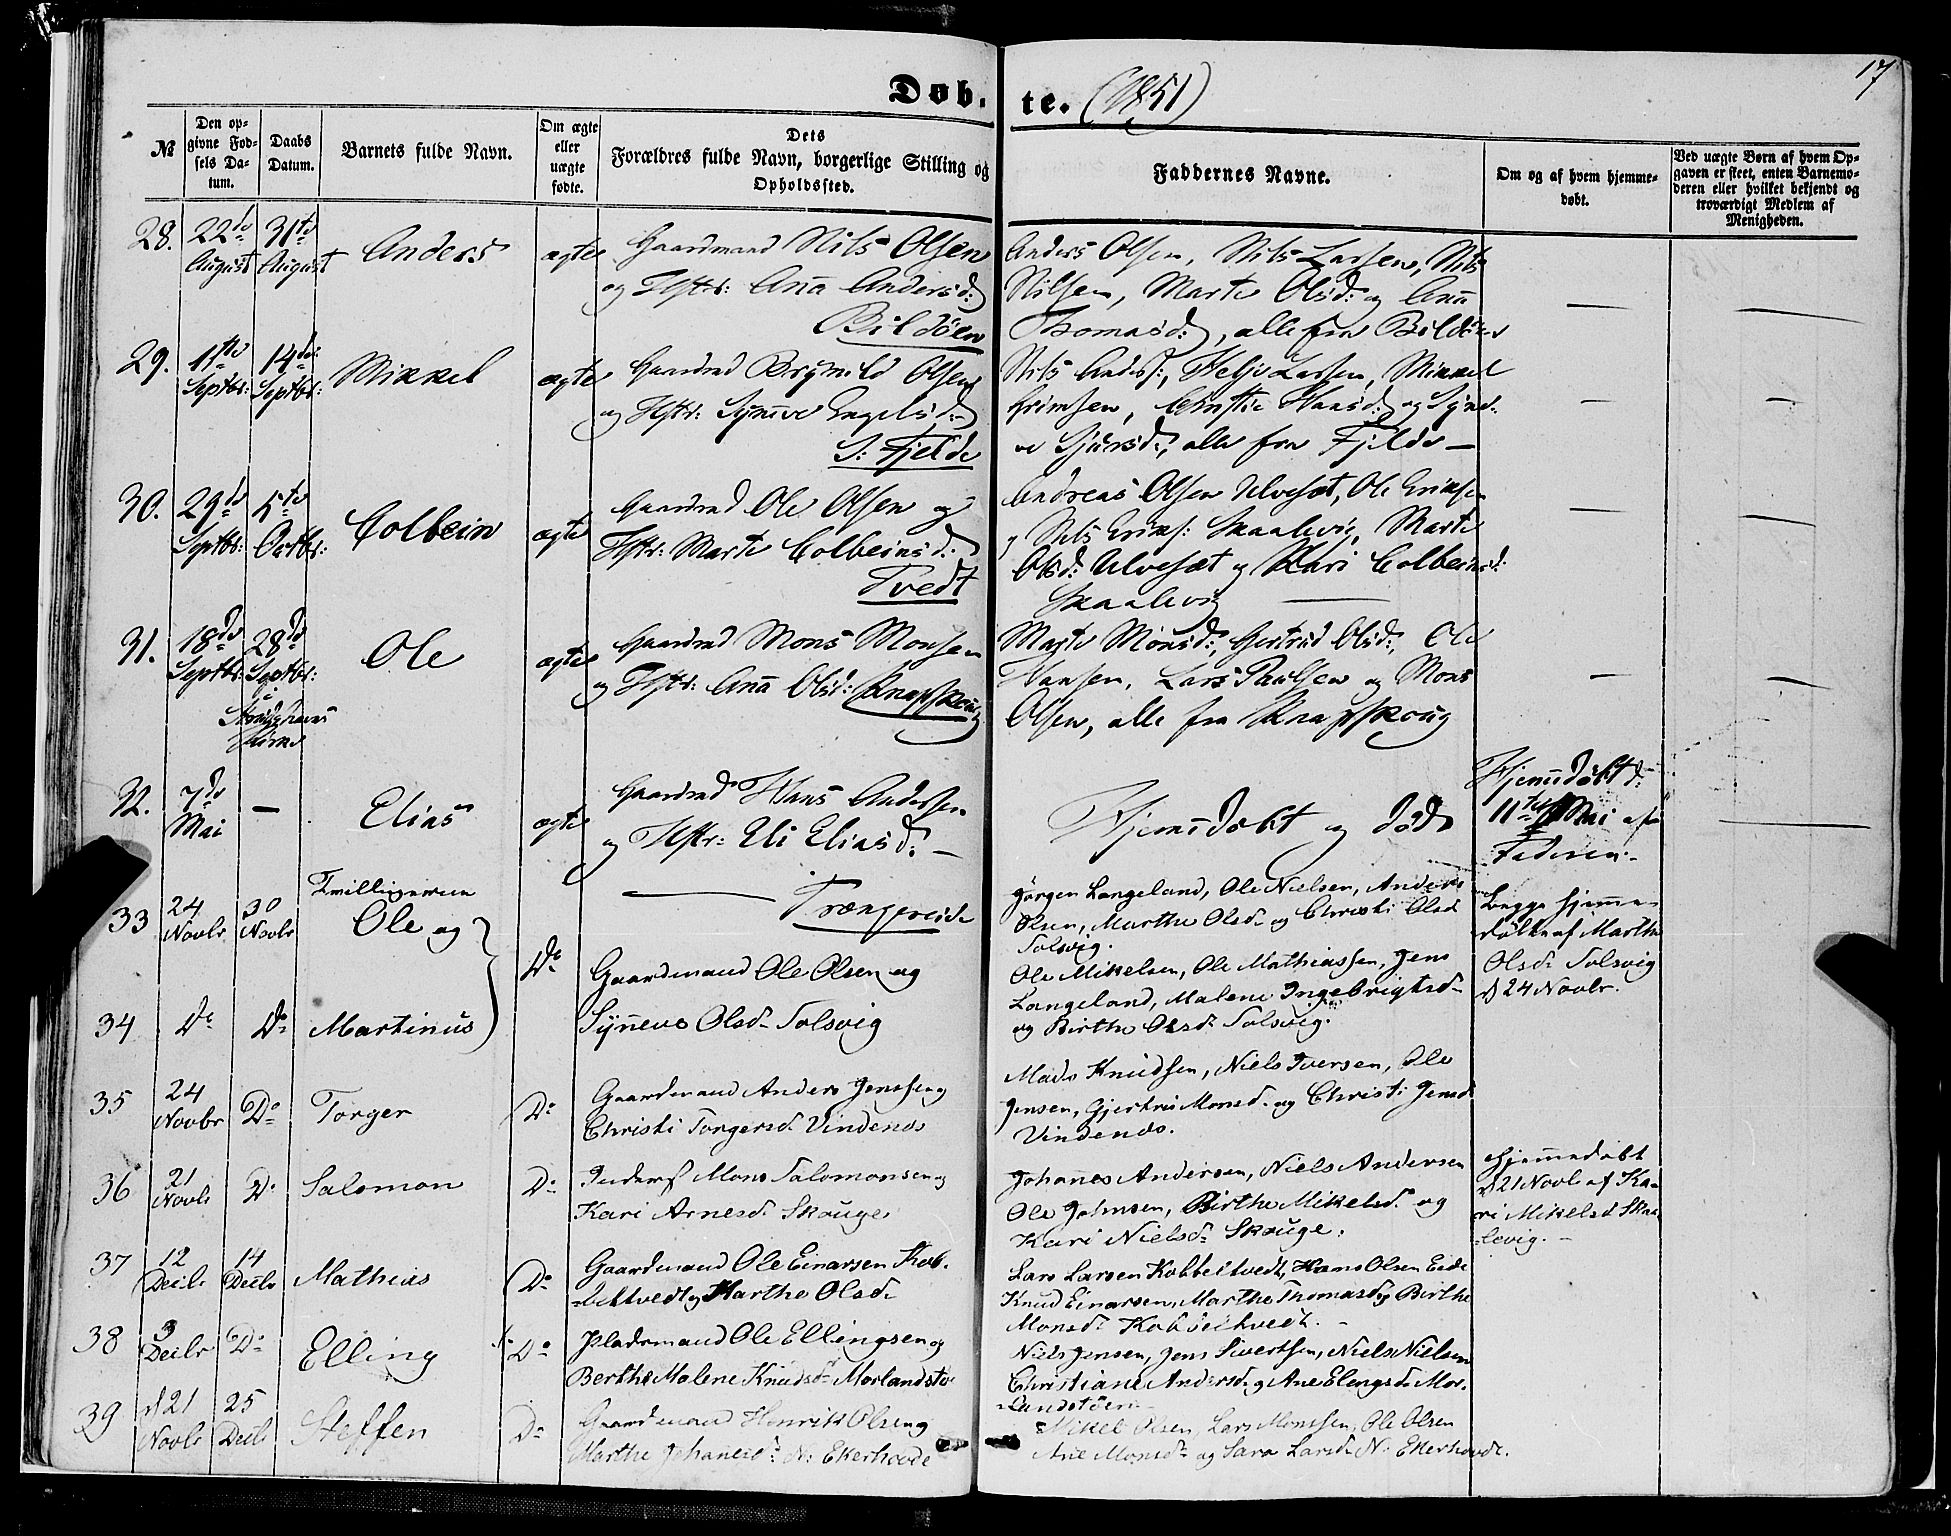 17
Døb- te. (1851)
№
Den opgivne Fødsels Datum.
Daabs Datum.
Barnets fulde Navn.
Om ægte eller uægte fødte.
Dets Forældres fulde Navn, borgerlige Stilling og Opholdssted.
Faddernes Navne.
Om og af hvem hjemmedøbt.
Ved uægte Børn af hvem Opgaven er skeet, enten Barnemoderen eller hvilket bekjendt og troværdigt Medlem af Menigheden.
28. 22de August 31te August Anders ægte Gaardmand Nils Olsen
og Hstr: Aña Andersd:
Bildöen
Anders Olsen, Nils Larsen, Nils
Nilsen, Marte Olsd: og Aña
Thomasd:, alle fra Bildöen
29. 11te Septbr: 14de Septbr: Mikkel ægte Gaardmd Brynild Olsen
og Hstr: Syñeve Engelsd:
S: Fjelde
Nils Anders:, Helje Larsen, Mikkel
Grimsen, Christie Hansd: og Syne-
ve Sjursd:, alle fra Fjelde
30. 29de Septbr: 5te Octbr: Colbein ægte Gaardmd Ole Olsen og
Hstr: Marte Colbeinsd:
Tvedt
Andreas Olsen Ulveset, Ole Eriksen
og Nils Eriks: Skaalevig, Marte
Olsd: Ulveset og Kari Colbeinsd:
Skaalevig
31. 18de Septbr: 28de Septbr: Ole ægte Gaardmd Mons Monsen
og Hstr: Aña Olsd: Knapskoug
Marte Monsd:, Gertrud Olsd:, Ole
Hansen, Lars Paulsen og Mons
Olsen, alle fra Knapskoug
32. 7de Mai — Elias ægte Gaardmd Hans Andersen
og Hstr: Eli Eliasd: —
Trængereide
Hjemmedøbt og død
Hjemmedøbt d:
11te Mai af
Faderen.
33 24 Novbr 30 Novbr Tvillingerne
Ole og
Do
Gaardmand Ole Olsen og
Jörgen Langeland, Ole Nielsen, Anders
Olsen, Marthe Olsd. og Christi Olsd
Solsvig.
Begge hjemme-
døbte af Marthe
Olsd. Solsvig
d 24 Novbr.
34 Do Do Martinus
Syñeve Olsd. Solsvig
Ole Mikelsen, Ole Mathiassen, Jens
Langeland, Malene Ingebrigtsd.
og Birthe Olsd. Solsvig.
35 24 Novbr Do Torger Do Gaardmand Anders Jensen og
Christi Torgersd. Vindenes
Mads Knudsen, Niels Iversen, Ole
Jensen, Gjertru Monsd. og Christi Jensd
Vindenes.
36 21 Novbr Do Salomon Do Mons Salomonsen og
Kari Arnesd. Skouge
Johannes Andersen, Niels Andersen
Ole Johnsen, Birthe Mikelsd. og
Kari Nielsd. Skouge.
Hjemmedøbt
d 21 Novbr af Ka-
ri Mikelsd Skaa-
levig. —
37 12 Decbr 14 Decbr Mathias Do Gaardmand Ole Einarsen Kob-
beltvedt og Marthe Olsd.
Lars Larsen Kobbeltvedt, Hans Olsen Eide
Knud Einarsen, Marthe Thomasd og Birthe
Monsd. Kobbeltvedt. —
38 3 Decbr Do Elling Do Pladsmand Ole Ellingsen og
Berthe Malene Knudsd. Morlandstö
Niels Jensen, Jens Sivertsen, Niels Nielsen
Christiane Andersd. og Ane Elengsd. Mor-
landstöen
39 d 21 Novbr 25 Decbr Steffen Do Gaardmand Henrik Olsen og
Marthe Johanesd. N: Ekerhovde
Mikel Olsen, Lars Monssen, Ole Olsen
Ane Monsd. og Sara Larsd. N: Ekerhovde.